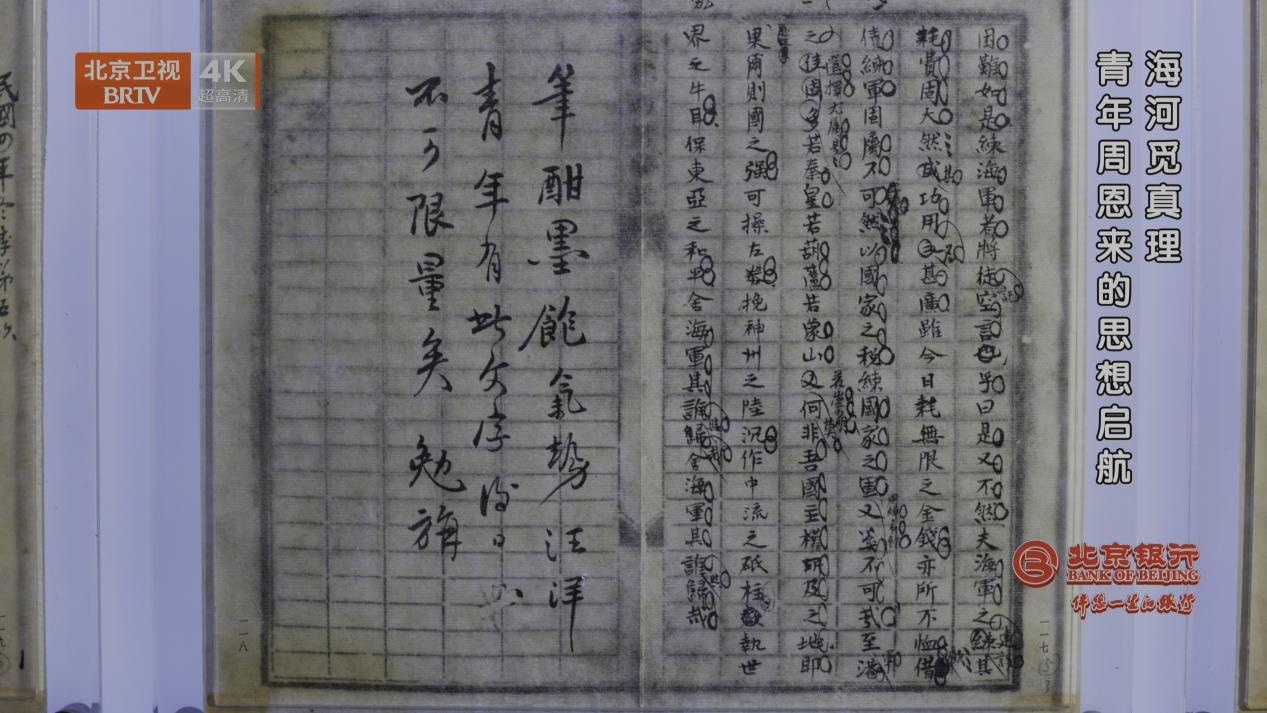 北京卫视
BRTV
4K
超高清
海河觅真理
青年周恩来的思想启航
北京银行
BANK OF BEIJING
伴您一生的银行
困難如是練海軍者將徒空言乎曰是又不然夫海軍之練其
耗費固大然成功用又甚廣雖今日耗無限之金錢亦所不恤借
待練軍固屬不可然以國家之稅練國家之軍又奚不可哉至港
之佳固多若秦皇若葫蘆若象山又何非吾國主權所及之地即
果爾則國之强可操左券挽神州之陸沉作中流之砥柱執世
界之牛耳保東亞之和平舍海軍其誰歸舍海軍其誰歸哉
筆酣墨飽氣勢汪洋
青年有此文字後日
不可限量矣 勉旃
一一七
一一八
民國四年冬季第五次